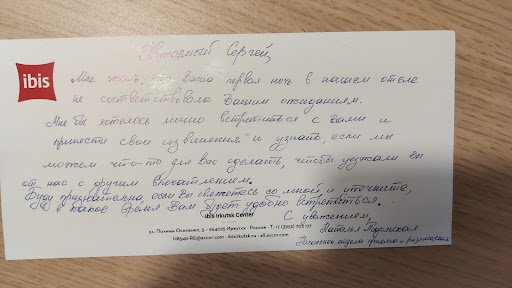 Уважаемый Сергей,
ibis
Мне жаль, что Ваша первая ночь в нашем отеле
не соответствовала Вашим ожиданиям.
Мне бы хотелось лично встретиться с Вами и
принести свои извинения и узнать, если мы
можем что-то для Вас сделать, чтобы уезжали Вы
от нас с другим впечатлением.
Буду признательна, если Вы свяжетесь со мной, и уточните,
в какое время Вам будет удобно встретиться.
ibis Irkutsk Center
С уважением,
ул. Полины Осипенко, 5 - 664025 Иркутск - Россия - Т: +7 (3952)
Наталья
accor.com - ibisirkutsk.ru - all.accor.com
Начальник отдела приема и размещения